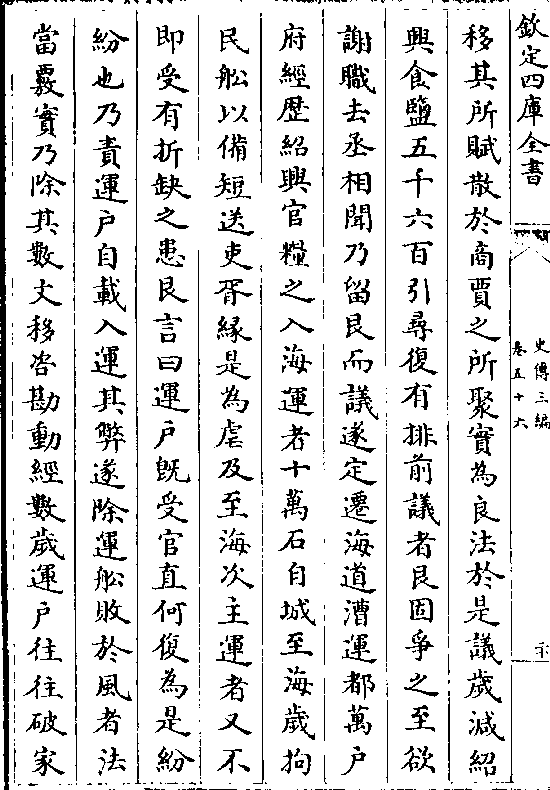 欽定四庫全書
史傳三編
卷五十六
移其所賦散於商賈之所聚實為良法於是議歲減紹
興食鹽五千六百引尋復有排前議者艮固爭之至欲
謝職去丞相聞乃留艮而議遂定遷海道漕運都萬户
府經歴紹興官糧之入海運者十萬石自城至海歲拘
民船以備短送吏胥緣是為虐及至海次主運者又不
即受有折缺之患艮言曰運户既受官直何復為是紛
紛也乃責運户自載入運其弊遂除運船敗於風者法
當覈實乃除其數文移咨勘動經數歲運户往往破家